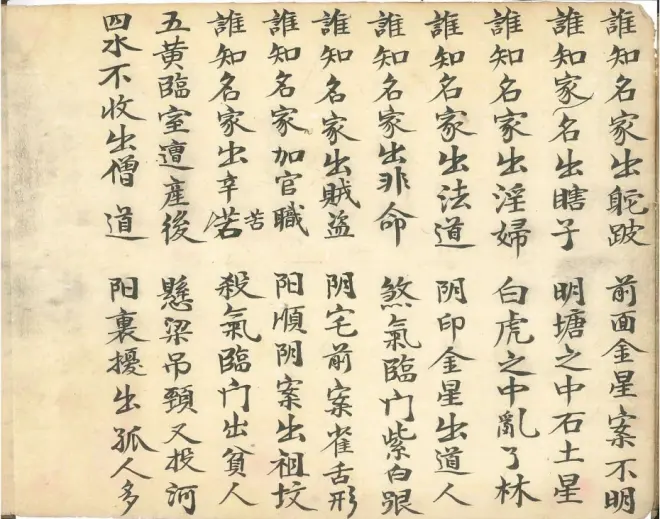 誰知名家出駝跛 前面金星案不明
誰知家名出瞎子 明塘之中石土星
誰知名家出淫婦 白虎之中亂了林
誰知名家出法道 阴印金星出道人
誰知名家出非命 煞氣臨门紫白跟
誰知名家出賊盗 阴宅前案雀舌形
誰知名家加官職 阳順阴案出祖坟
誰知名家出辛若苦 殺氣臨门出貧人
五黄臨室遭產後 懸梁吊頸又投河
四水不收出僧道 阳裏擾出孤人多